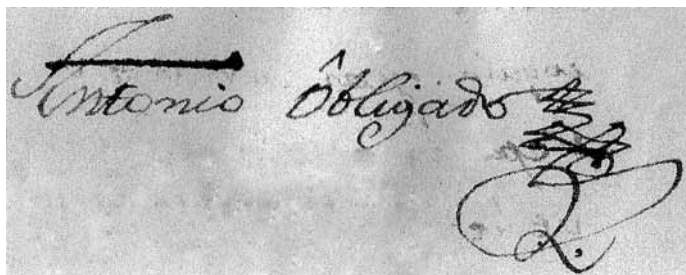 Antonio Obligado